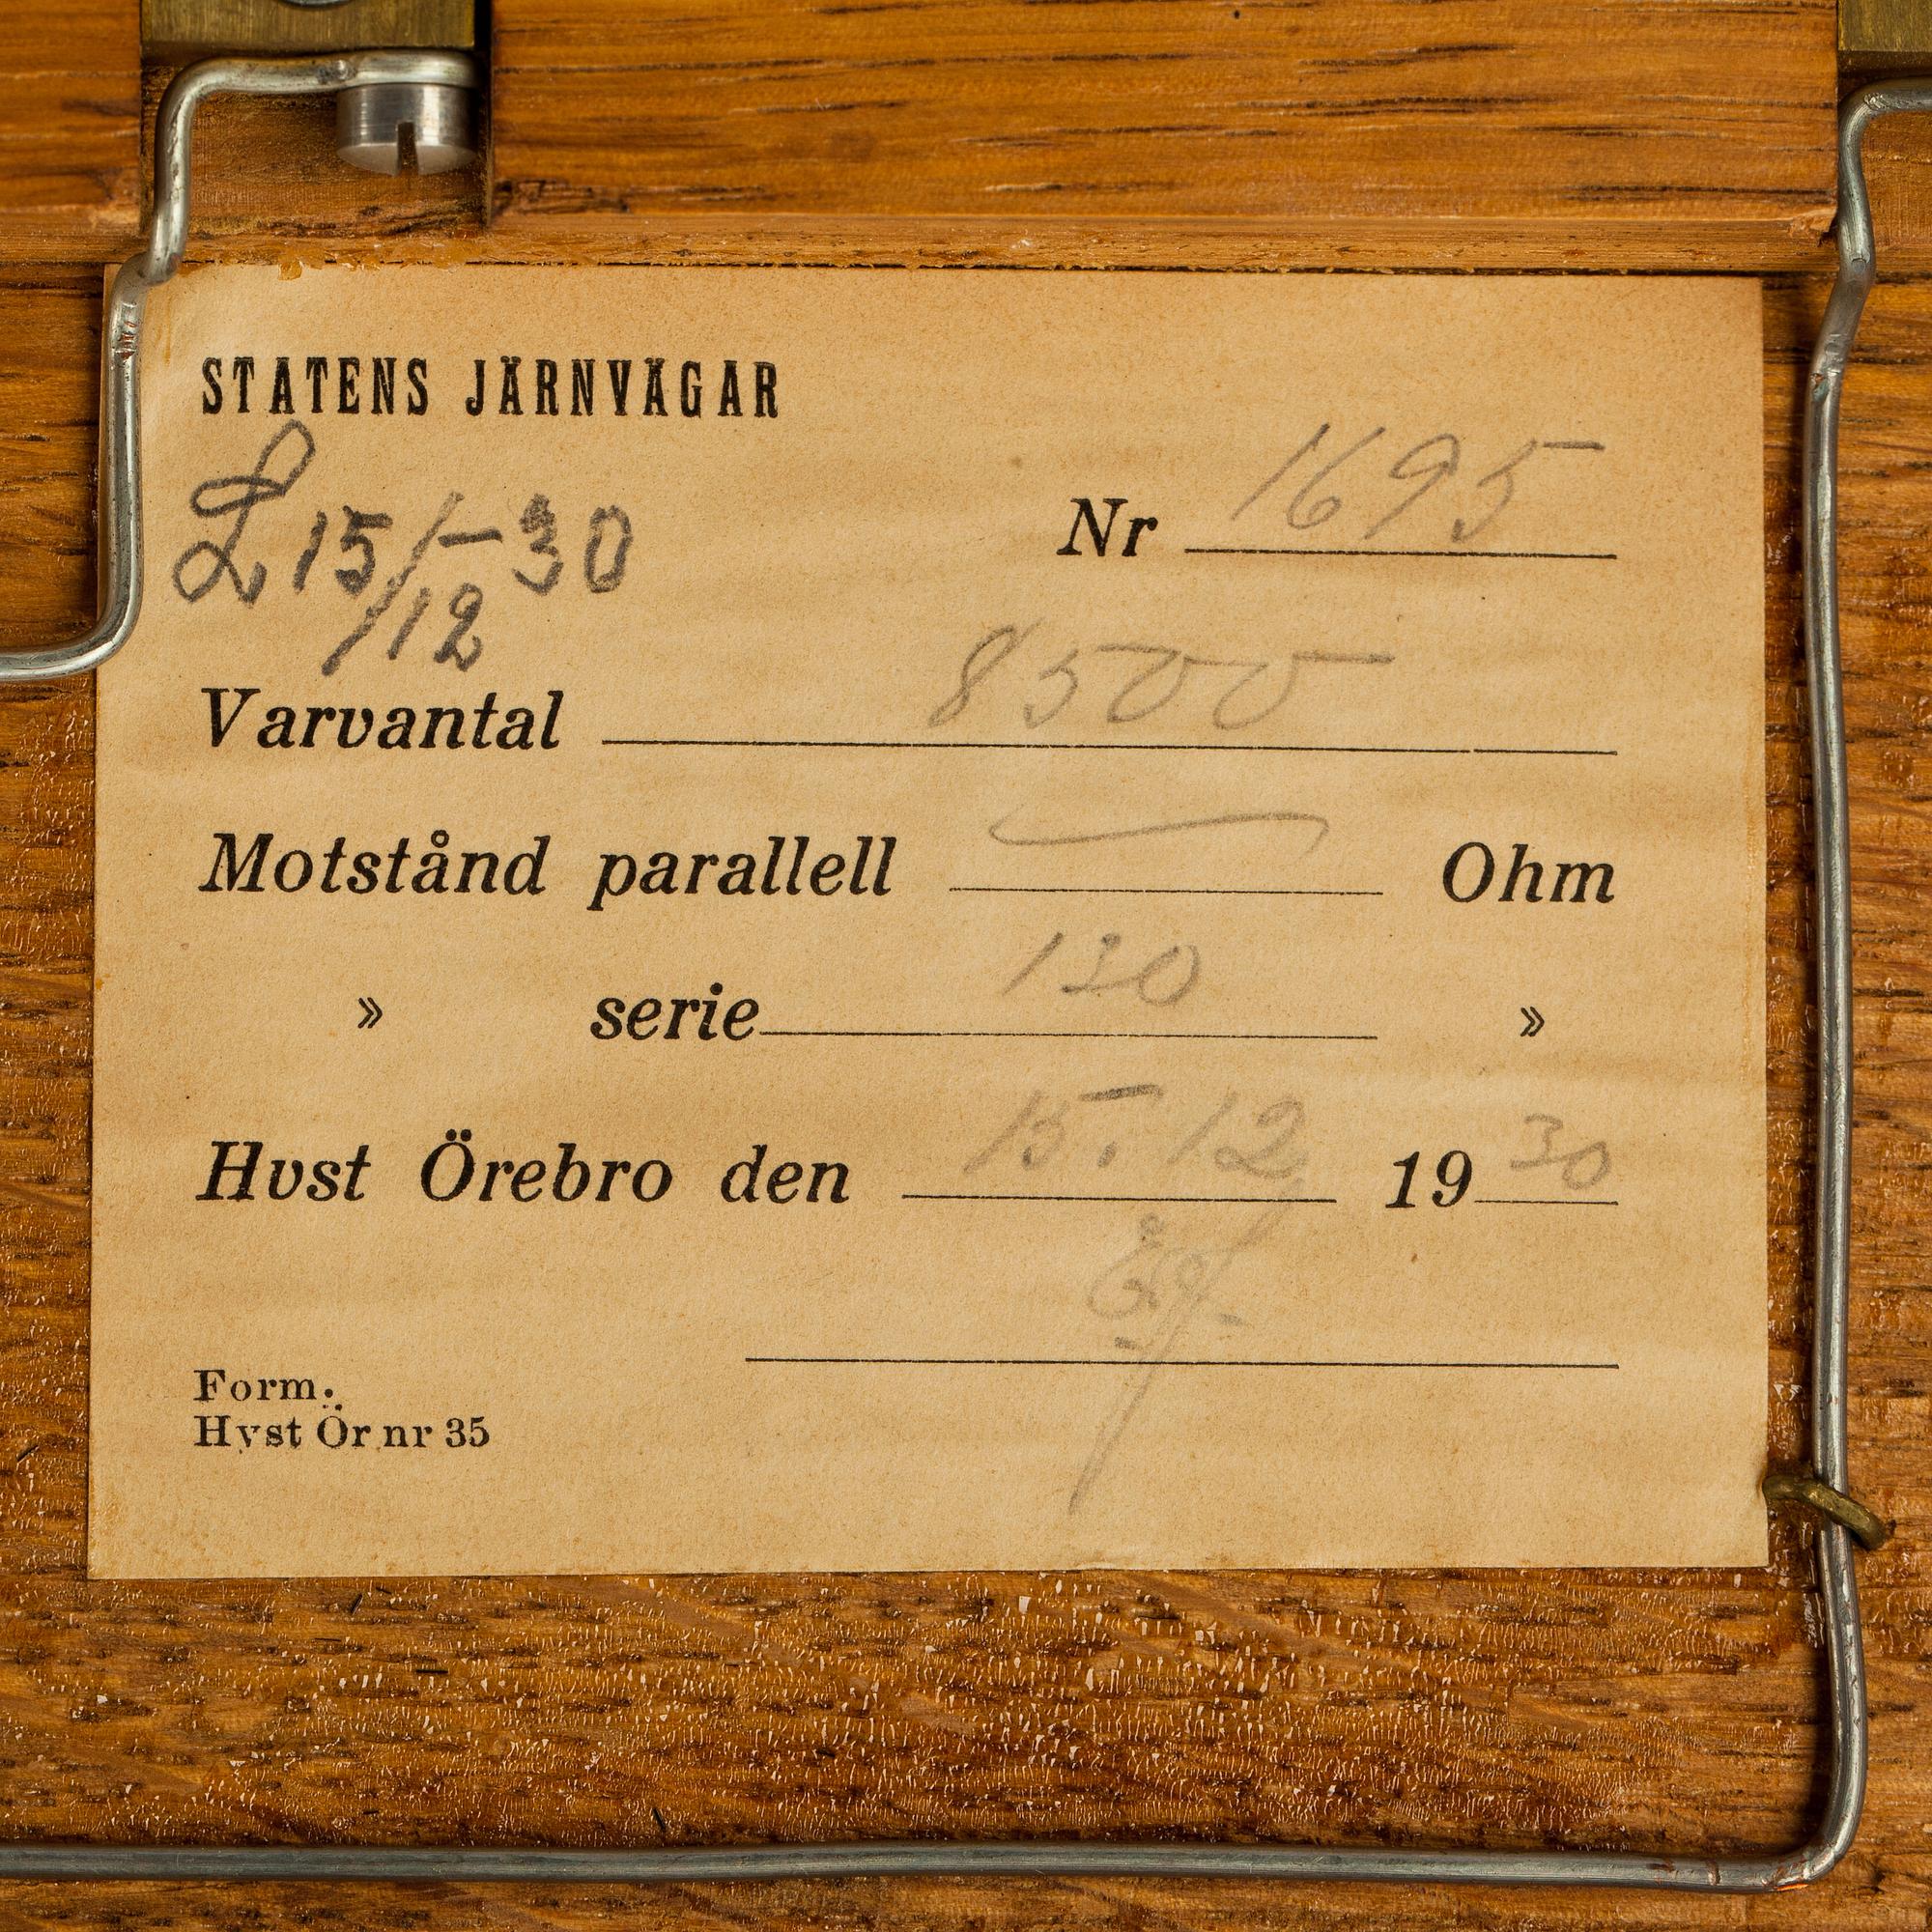 STATENS JÄRNVÄGAR
L 15/12 - 30
Nr 1695
Varvantal 8500
Motstånd parallell — Ohm
» serie 130 »
Hvst Örebro den 15.12 1930
Form.
Hvst Ör nr 35